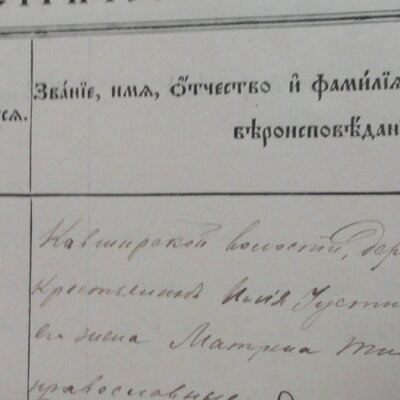 ся.
Зва́нїе, имя, ѻ҆́тчество и҆ фами́лїя
вѣроисповѣдані
Кавширской волости, дер
крестьянинъ Илія Густи
его жена Матрна
православные